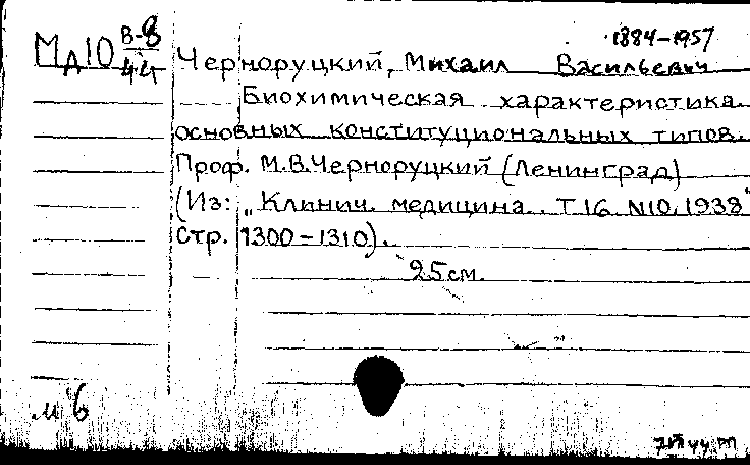 1884-1957
МД10 В-8/44 Черноруцкий, Михаил Васильевич
Биохимическая характеристика
основных конституциональных типов.
Проф. М.В.Черноруцкий (Ленинград)
(Из: „Клинич. медицина. Т16. N10. 1938"
Стр. 1300-1310).
25см.
м 6